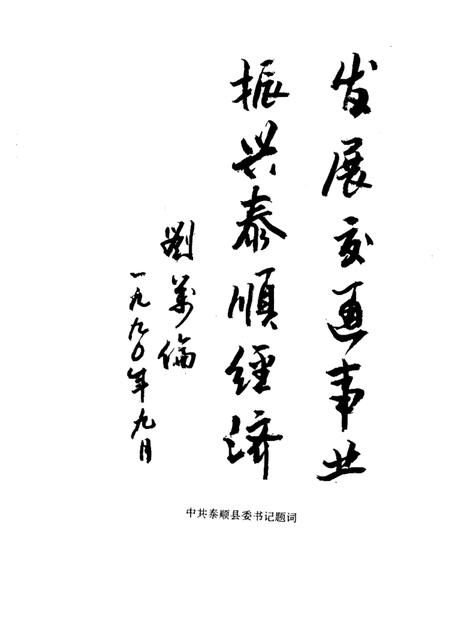 发展交通事业
振兴泰順经济
劉萬倫
一九九〇年九月
中共泰顺县委书记题词